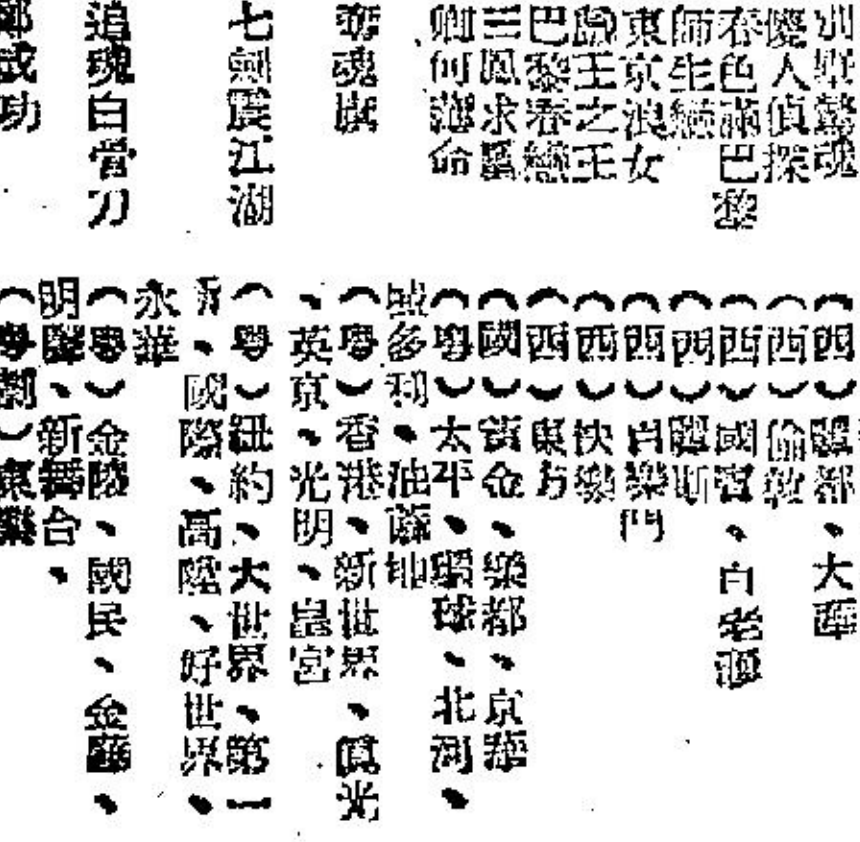 驚魂 （西）麗都、大華
人偵探 （西）倫敦
春色滿巴黎 （西）國賓、白老滙
師生戀 （西）麗斯
東京浪女 （西）百樂門
王之王 （西）快樂
巴黎春戀 （西）東方
三鳳求凰 （國）黃金、樂都、京華
卿何薄命 （粵）太平、環球、北河、
域多利、油蔴地
奪魂旗 （粵）香港、新世界、眞光
、英京、光明、皇宮
七劍震江湖 （粵）紐約、大世界、第一
、國際、高陞、好世界、
永華
追魂白骨刀 （粵）金陵、國民、金華、
明聲、新舞台、
鄭成功 （粵劇）東樂